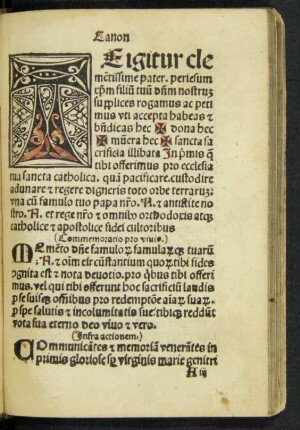 Canon
TE igitur cle
mētissime pater. per iesum
cp̄m filiū tuū dn̄m nostruꝫ
supplices rogamus ac peti
mus vti accepta habeas ⁊
bn̄dicas hec ✠ dona hec
✠ mūera hec ✠ sancta sa
crificia illibata Inp̄mis q̄
tibi offerimus pro ecclesia
tua sancta catholica. quā pacificare. custodire
adunare ⁊ regere digneris toto orbe terraruꝫ. v
na cū famulo tuo papa nr̄o. N. ⁊ antistite no
stro. N. et rege nr̄o ⁊ omnibꝰ ortodoxis atqꝫ
catholice ⁊ apostolice fidei cultoribus
(Commemoratio pro viuis.)
MEmēto dn̄e famuloꝝ famularūqꝫ tuarū
N. ⁊ oīm circūstantium quoꝝ tibi fides
cognita est ⁊ nota deuotio. pro qͥbus tibi offeri
mus. vel qui tibi offerunt hoc sacrificiū laudis
p se suisqꝫ oībus pro redemptōe aīaꝝ suaꝝ.
p spe salutis ⁊ incolumitatis sue: tibiqꝫ reddūt
vota sua eterno deo viuo ⁊ vero.
(Infra actionem.)
COmmunicātes ⁊ memoriā venerātes in
primis gloriose sꝑ virginis marie genitri
A iij